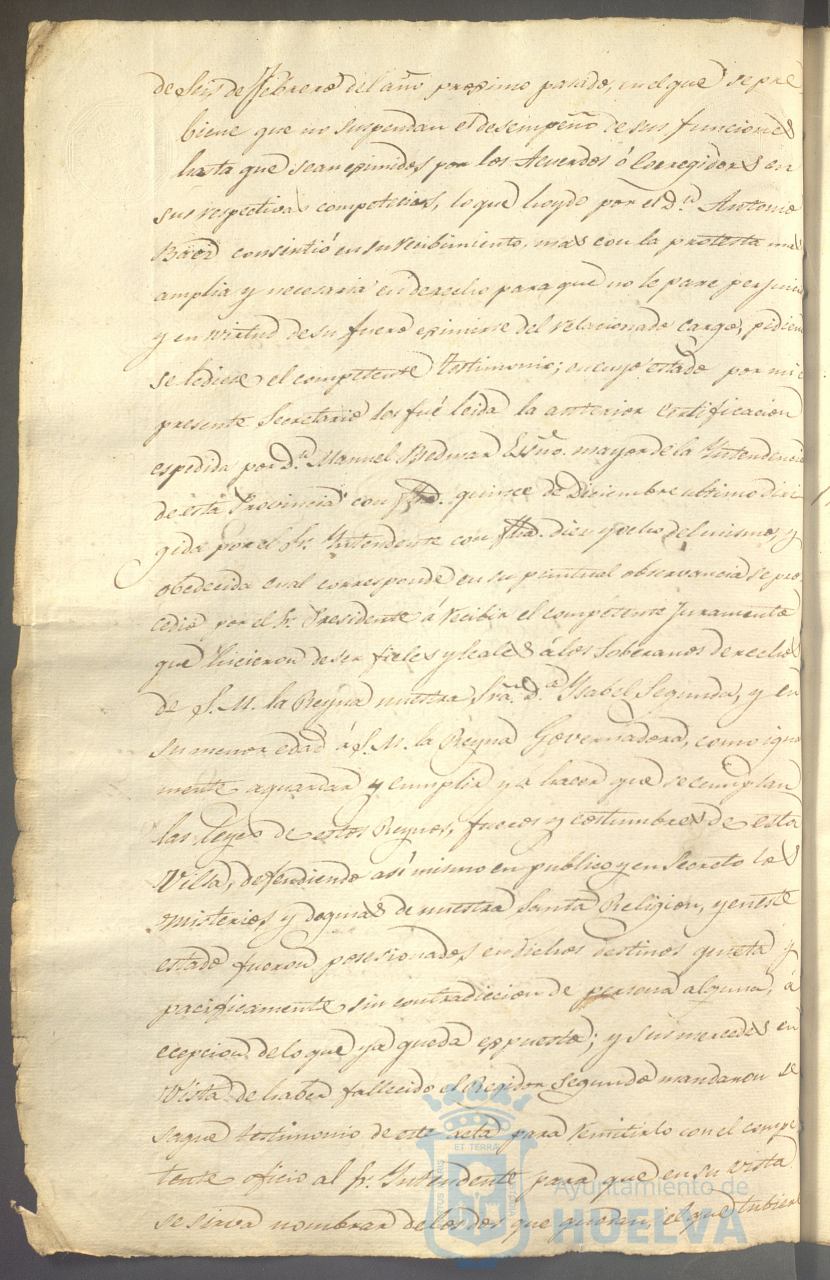 de Seis de Febrero del año proximo pasado, en el que se pre
biene que no suspendan el desempeño de sus funciones
hasta que sean eximidos por los Acuerdos ó Corregidores en
sus respectivas competecias, lo que hoydo por el D.n Antonio
Baez consintió en su recibimiento, mas con la protesta mas
amplia y necesaria en derecho para que no le pare perjuicio
y en virtud de su fuero eximirse del relacionado cargo, pidiendo
se le diese el competente testimonio; en cuyo estado por mi e
presente Secretario les fué leida la anterior certificacion
espedida por D.n Manuel Bedmar Essno. mayor de la Yntendencia
de esta Provincia con fha. quince de Diciembre ultimo diri
gida por el Sr. Yntendente con fha. diez y ocho del mismo, y
obedecida cual corresponde en su puntual observancia se pro
cedio por el Sr. Presidente á recibir el competente Juramento
que hicieron de ser fieles y leales á los Soberanos derechos
de S. M. la Reyna nuestra Sra. D.a Ysabel Segunda, y en
su menor edad á S. M. la Reyna Governadora, como igual
mente aguardar y cumplir y a hacer que se cumplan
las leyes de estos Reynos, fueros y costumbres de esta
Villa, defendiendo así mismo en publico y en Secreto los
misterios y dogmas de nuestra Santa Religion, y en este
estado fueron posesionados en dichos destinos quieta y
pacificamente sin contradiccion de persona alguna, á
ecepcion de lo que ya queda espuesto; y sus mercedes en
vista de haber fallecido el Regidor Segundo mandaron se
saque testimonio de este acta para remitirlo con el compe
tente oficio al Sr. Yntendente para que en su vista
se sirva nombrar de los dos que quedan, el que tubiere
ET TERRÆ
Ayuntamiento de
HUELVA